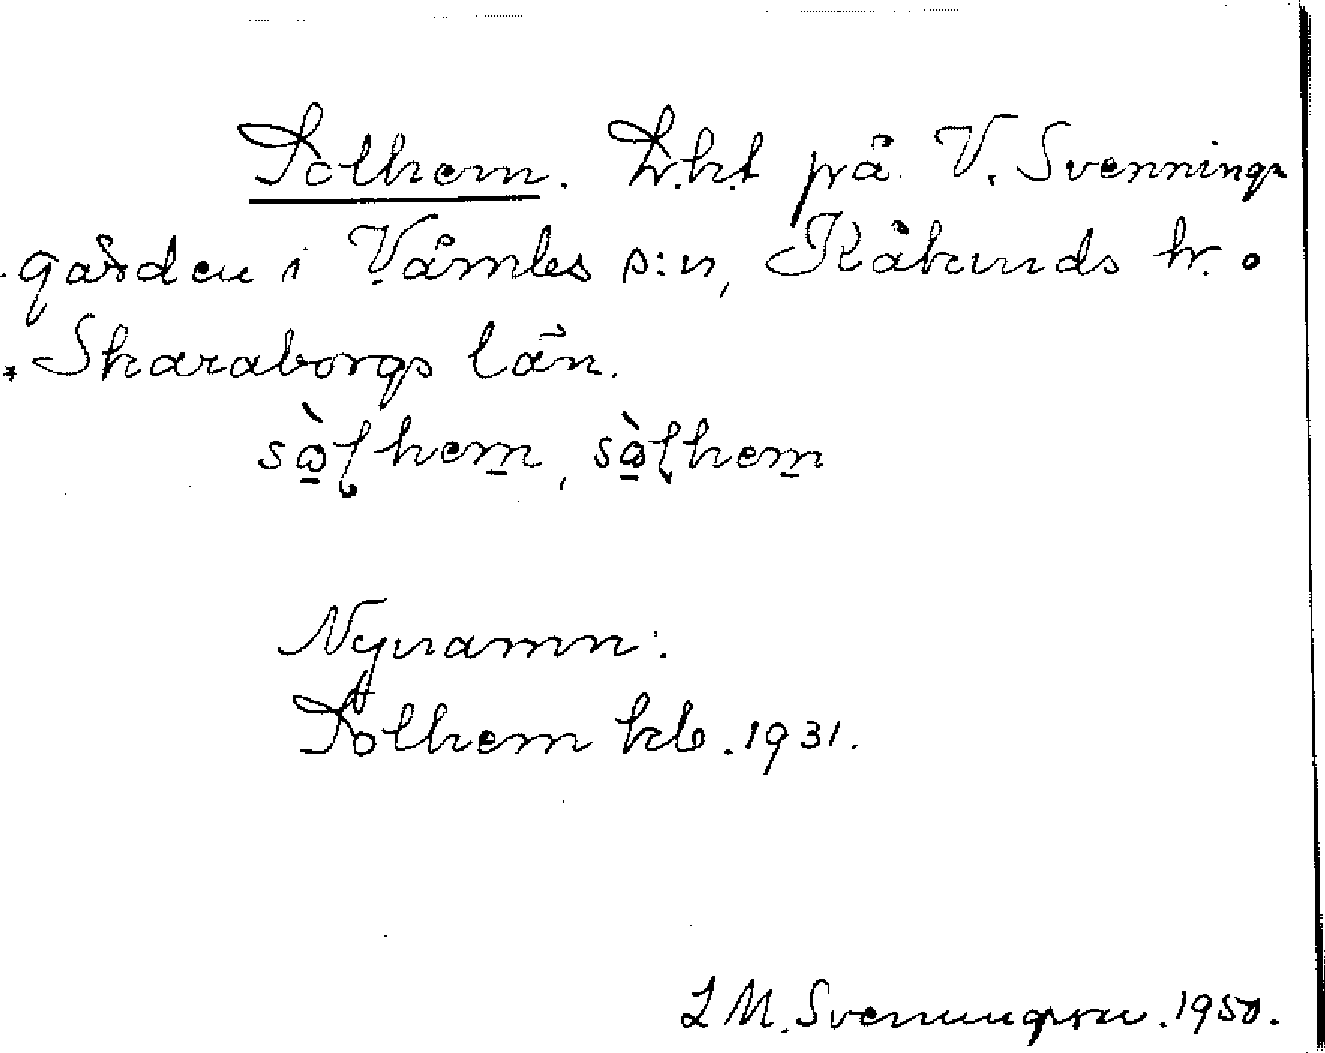 Solhem. Lht på V. Svennings
garden i Våmbs s:n, Kåkinds h. o
Skaraborgs län.
sòlhem, sòlhem
Nynamn:
Solhem kb. 1931.
L M. Svenungson. 1950.